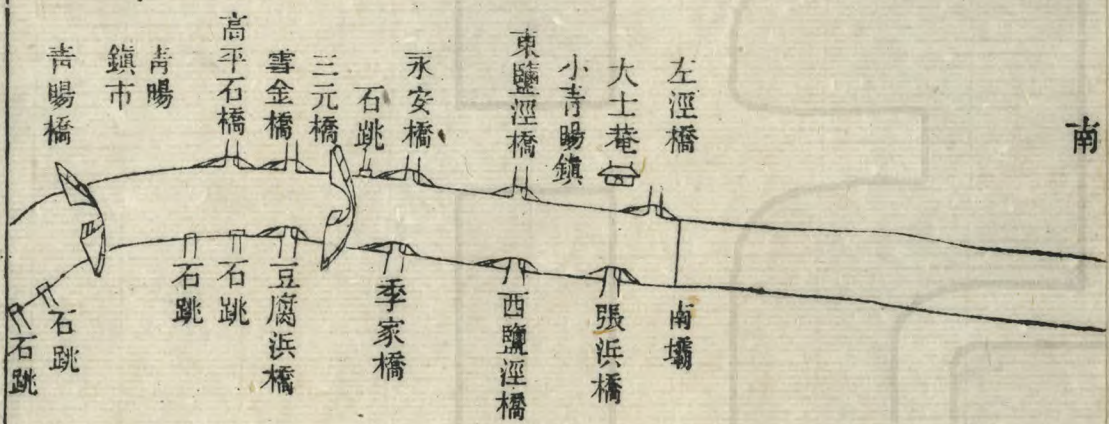 南
左涇橋
大士菴
小青暘鎮
東鹽涇橋
永安橋
石跳
三元橋
雲金橋
高平石橋
青暘
鎮市
青暘橋
南壩
張浜橋
西鹽涇橋
季家橋
豆腐浜橋
石跳
石跳
石跳
石跳